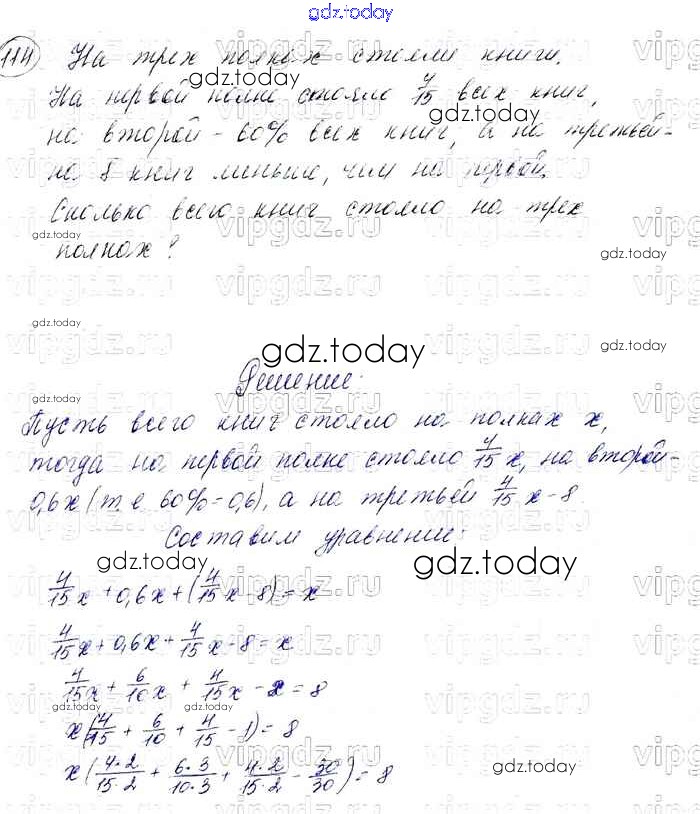 gdz.today
114 На трех полках стояли книги.
На первой полке стояло 4/15 всех книг,
на второй - 60% всех книг, а на третьей -
на 8 книг меньше, чем на первой.
Сколько всего книг стояло на трех
полках?
Решение:
Пусть всего книг стояло на полках x,
тогда на первой полке стояло 4/15 x, на второй -
0,6x (т.е 60% = 0,6), а на третьей 4/15 x - 8.
Составим уравнение:
4/15 x + 0,6x + (4/15 x - 8) = x
4/15 x + 0,6x + 4/15 x - 8 = x
4/15 x + 6/10 x + 4/15 x - x = 8
x(4/15 + 6/10 + 4/15 - 1) = 8
x(4·2/15·2 + 6·3/10·3 + 4·2/15·2 - 30/30) = 8